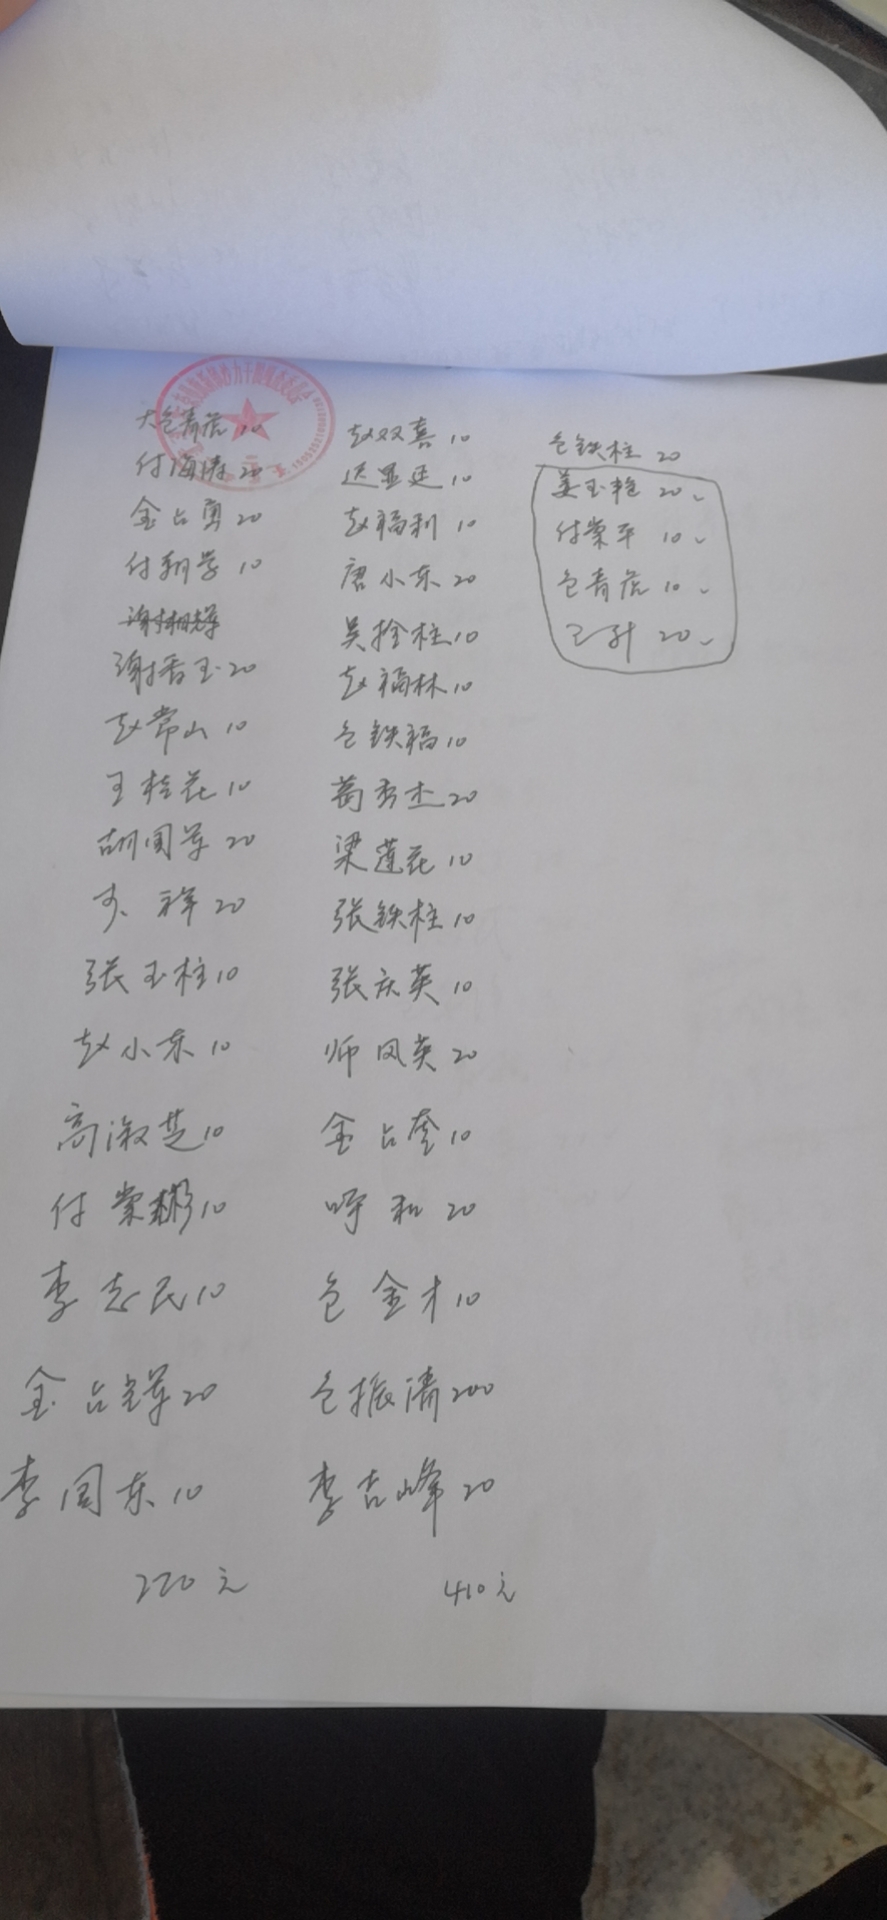 大包青虎 20
付海涛 20
金占勇 20
付翔学 10
谢香玉 20
赵常山 10
王桂花 10
胡国军 20
祥 20
张玉柱 10
赵小东 10
高淑芝 10
付荣彬 10
李志民 10
金占军 20
李国东 10
220元
赵双喜 10
迟显廷 10
赵福利 10
唐小东 20
吴拴柱 10
赵福林 10
包铁福 10
葛秀杰 20
梁莲花 10
张铁柱 10
张庆英 10
师凤英 20
金占奎 10
呼和 20
包金才 10
包振清 200
李吉峰 20
410元
包铁柱 20
姜玉艳 20
付荣平 10
包青虎 10
20